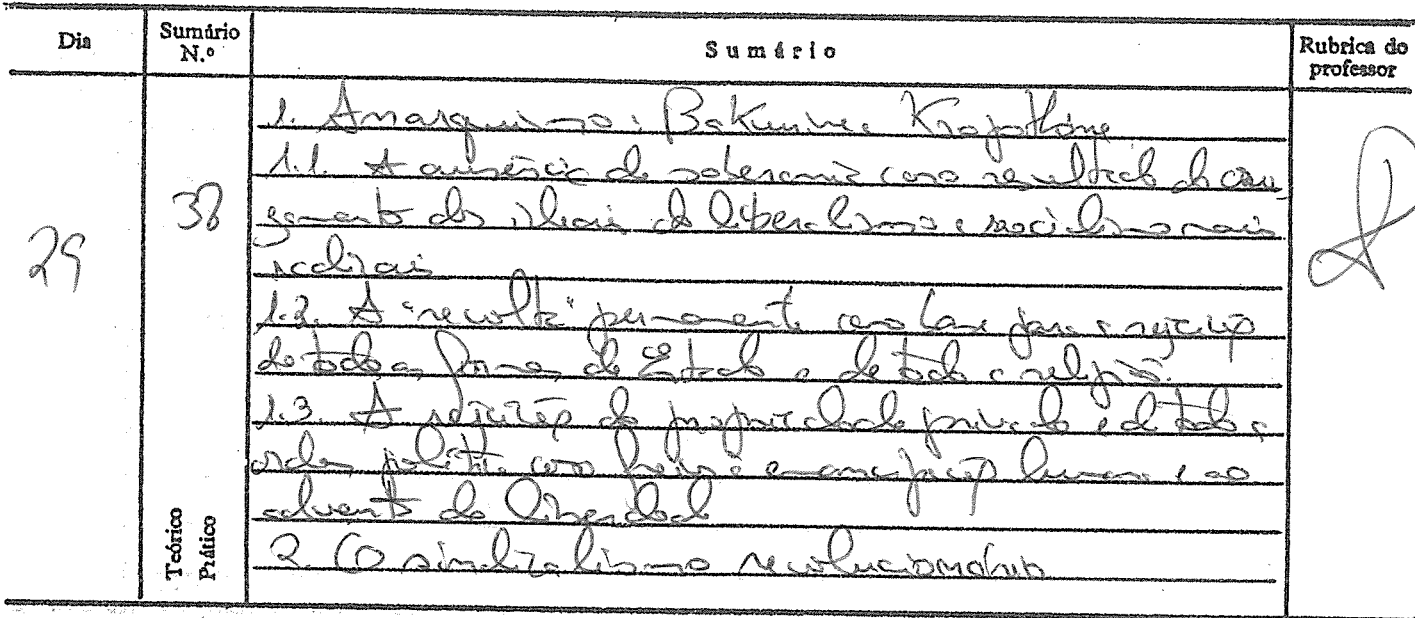 Dia
Sumário N.º
Sumário
Rubrica do professor
29
38
Teórico
Prático
1. Anarquismo: Bakunine e Kropotkine
1.1. A ausência de soberania como resultado do
gamento dos ideais do liberalismo e socialismo mais
radicais
1.2. A "revolta" permanente como base para a rejeição
de todas as formas de Estado e de toda a religião.
1.3. A rejeição da propriedade privada e de toda a
ordem política como freio à emancipação humana e ao
advento da liberdade
2. O sindicalismo revolucionário